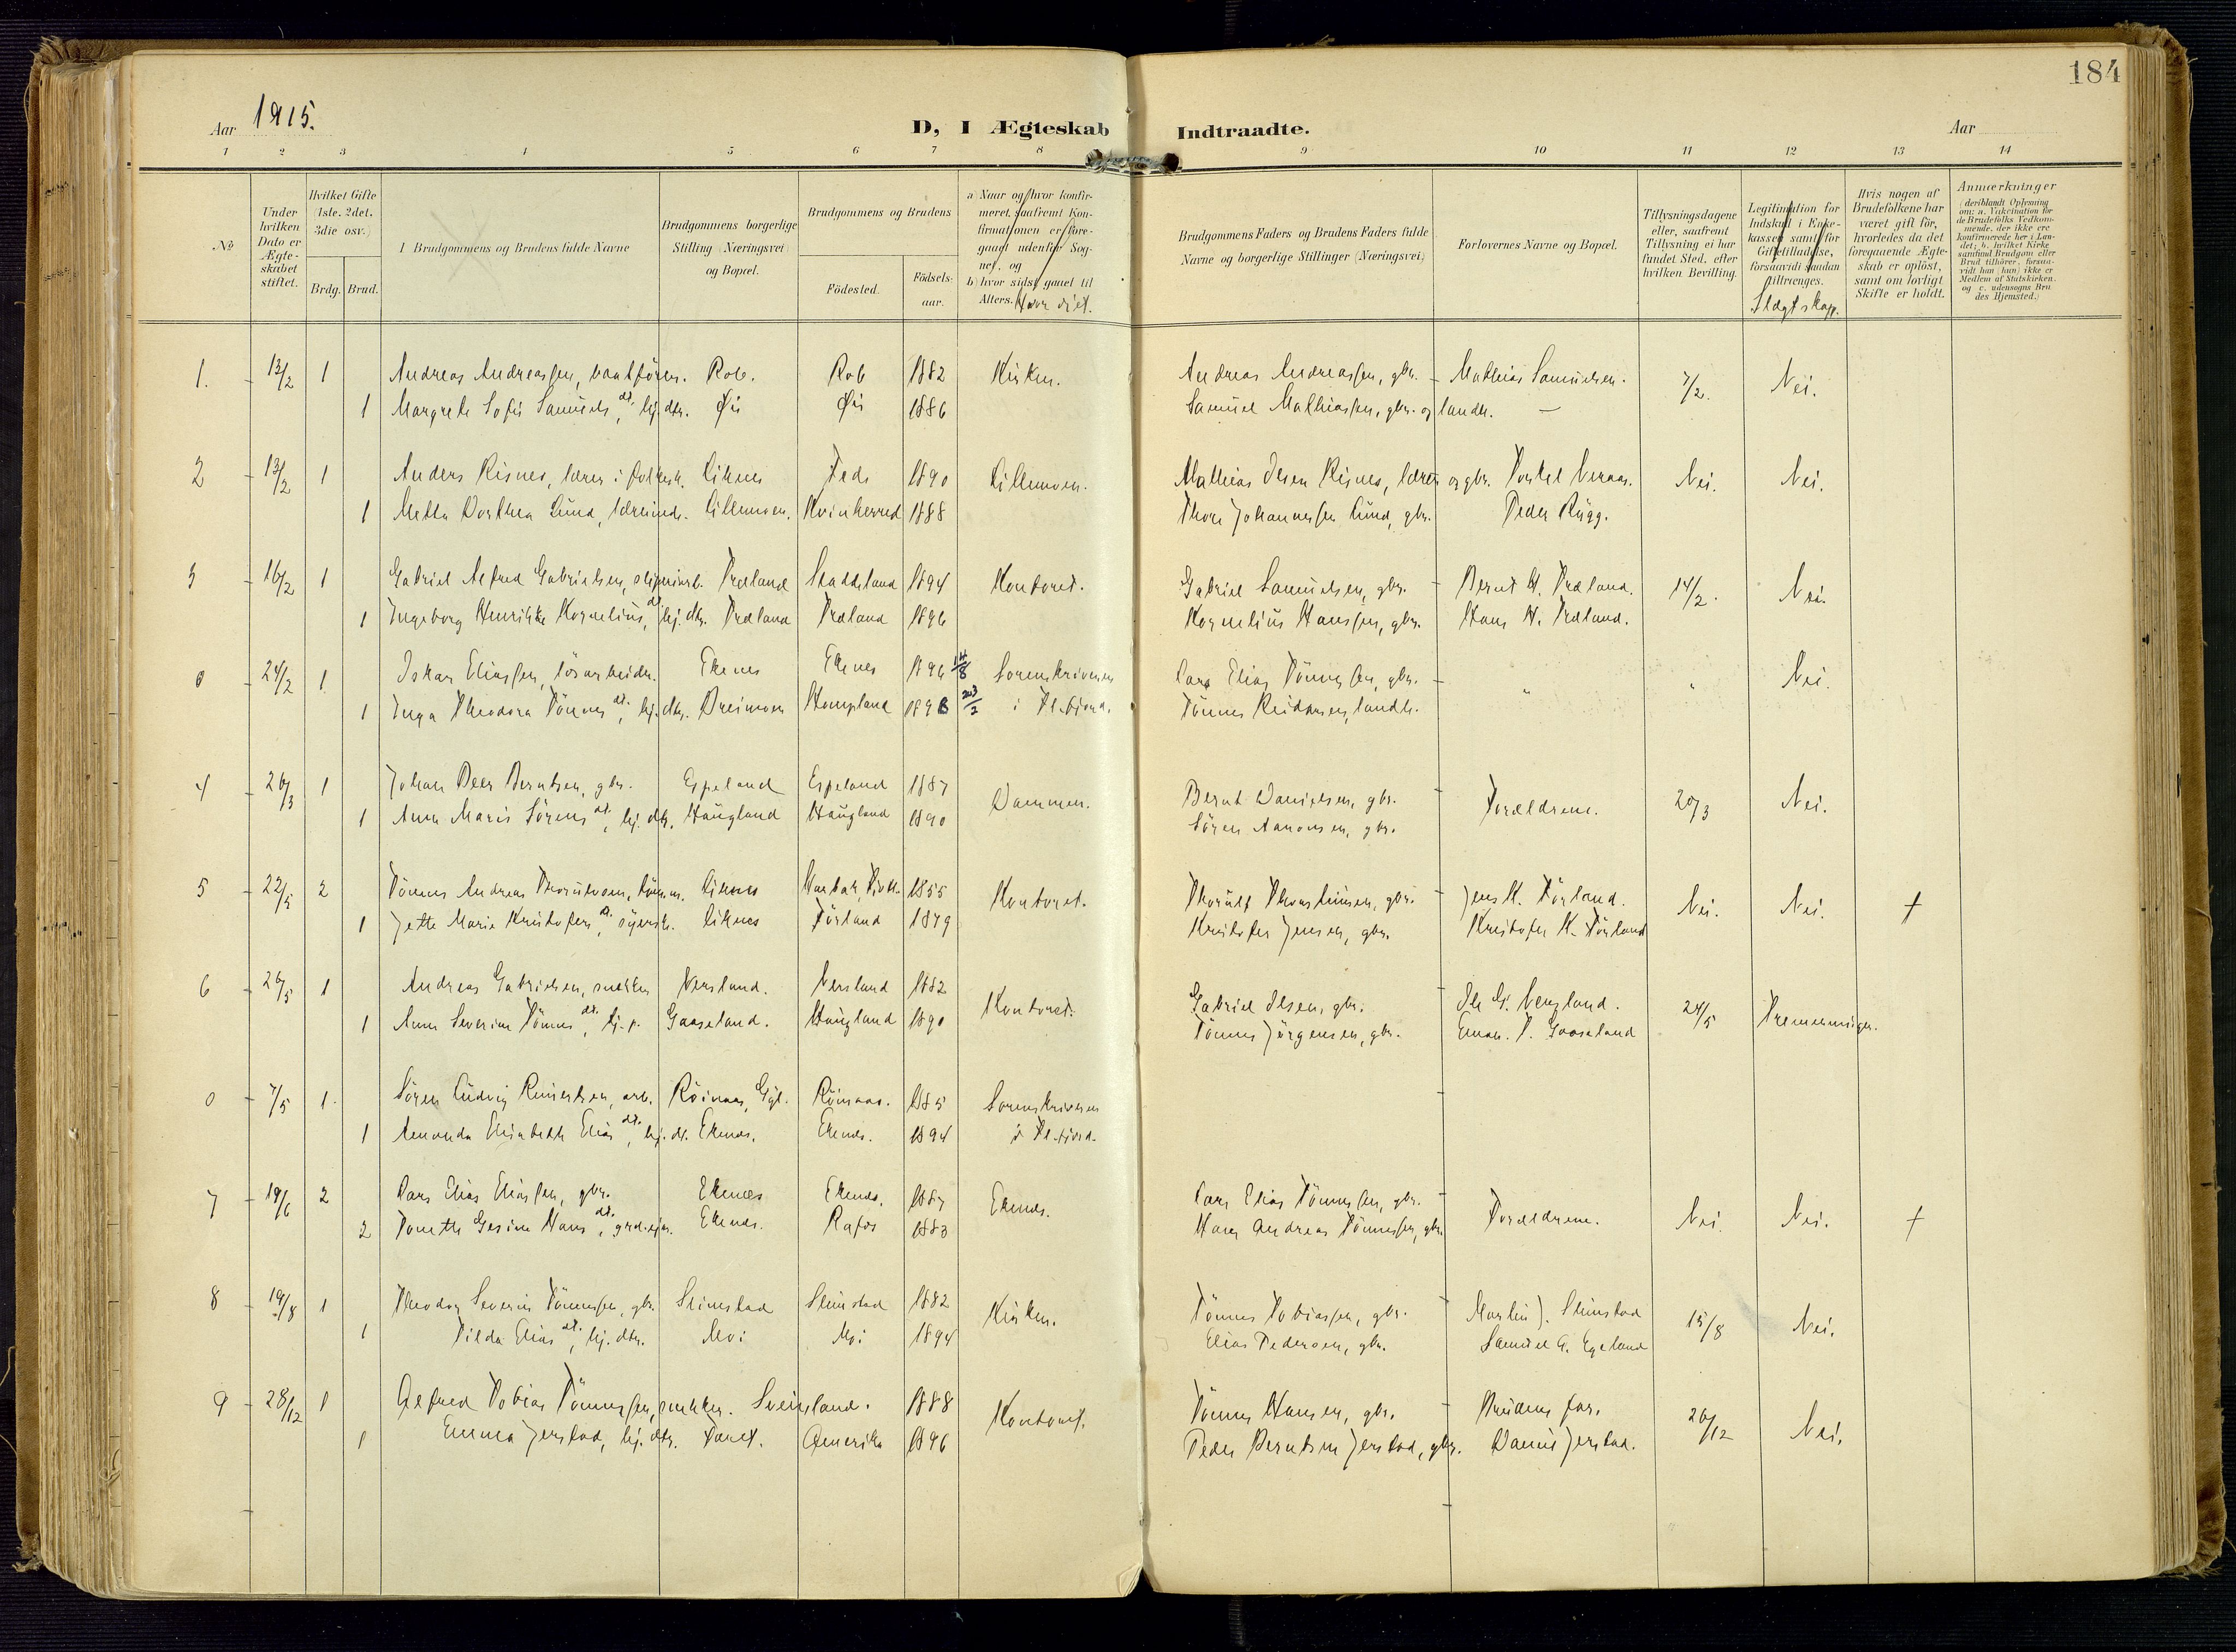 184
Aar 1915.
D, I Ægteskab Indtraadte.
Aar
1 2 3 4 5 6 7 8 9 10 11 12 13 14
No
Under hvilken Dato er Ægteskabet stiftet.
Hvilket Gifte (1ste. 2det. 3die osv.)
Brdg. Brud.
Brudgommens og Brudens fulde Navne
Brudgommens borgerlige Stilling (Næringsvei) og Bopæl.
Brudgommens og Brudens
Födested. Födselsaar.
a) Naar og hvor konfirmeret, saafremt Konfirmationen er foregaaet udenfor Sognet, og
b) hvor sidst gaaet til Alters. Hvor viet.
Brudgommens Faders og Brudens Faders fulde Navne og borgerlige Stillinger (Næringsvei)
Forlovernes Navne og Bopæl.
Tillysningsdagene eller, saafremt Tillysning ei har fundet Sted, efter hvilken Bevilling.
Legitimation for Indskud i Enkekassen samt for Giftetilladelse, forsaavidt saadan tiltrænges.
Slægtskap.
Hvis nogen af Brudefolkene har været gift för, hvorledes da det foregaaende Ægteskab er oplöst, samt om lovligt Skifte er holdt.
Anmærkninger
(deriblandt Oplysning om: a. Vakcination for de Brudefolks Vedkommende, der ikke ere konfirmerede her i Landet; b. hvilket Kirkesamfund Brudgom eller Brud tilhörer, forsaavidt han (hun) ikke er Medlem af Statskirken, og c. udensogns Brudes Hjemsted.)
1. 13/2 1 Andreas Andreassen, baatfører. Rob. Rob 1882 Kirken. Andreas Andreassen, gbr. Mathias Samuelsen. 7/2. Nei.
1 Margrete Sofie Samuels dt., hj.dtr. Øie Øie 1886 Samuel Mathiassen, gbr. og landh. —
2 13/2 1 Anders Risnes, lærer i folkesk. Liknes Feda 1890 Lillemoen. Mathias Olsen Risnes, lærer og gbr. Torkel Veraas. Nei. Nei.
1 Metta Dorthea Lund, lærerinde. Lillemoen. Kvinherred 1888 Thore Johannesen Lund, gbr. Peder Rygg.
3 16/2 1 Gabriel Alfred Gabrielsen, Træland 1894 Kontoret. Gabriel Samuelsen, gbr. Bernt H. Træland. 14/2. Nei.
1 Ingeborg Henrikke Kornelius dt., hj.dtr. Træland Træland 1896 Kornelius Hanssen, gbr. Hans H. Træland.
0 24/2 1 Oskar Eliassen, løsarbeider. Ekenes Ekenes 1896 14/8 Sorenskriveren Lars Elias Tønnessen, gbr. " " Nei.
1 Inga Theodora Tønnes dt., hj.dtr. Dreimoen Kvinesland 1898 23/2 i Flekkefjord. Tønnes Reidarsen, landh.
4 26/3 1 Johan Peer Berntsen, gbr. Espeland Espeland 1887 Dammen. Bernt Danielsen, gbr. Forældrene. 20/3 Nei.
1 Anna Marie Sørens dt., hj.dtr. Haugland Haugland 1890 Søren Aanonsen, gbr.
5 22/5 2 Tønnes Andreas Thorulvsen, Liknes 1855 Kontoret. Thorulf Thorstensen, gbr. Jens K. Førland. Nei. Nei. †
1 Jette Marie Kristofers dt., sypersk. Liknes Førland 1879 Kristofer Jensen, gbr. Kristofer K. Førland
6 26/5 1 Andreas Gabrielsen, snekker Versland. Versland 1882 Kontoret. Gabriel Olsen, gbr. Ole G. Versland. 24/5 Tremenninger.
1 Anna Severine Tønnes dt., tj.p. Gaaseland. Haugland 1890 Tønnes Jørgensen, gbr. Eman. T. Gaaseland
0 7/5 1 Søren Ludvig Reinertsen, arb. Røinaas, Gyl. Røinaas. 1885 Sorenskriveren
1 Amanda Elisabeth Elias dt., hj.dt. Ekenes. Ekenes. 1894 i Fl.fjord.
7 19/6 2 Lars Elias Eliassen, gbr. Ekenes Ekenes. 1887 Ekenes. Lars Elias Tønnessen, gbr. Forældrene. Nei. Nei. †
2 Tonette Gesine Hans dt., grd.eier. Ekenes. Rafos 1883 Hans Andreas Tønnessen, gbr.
8 19/8 1 Theodor Severin Tønnessen, gbr. Slimstad Slimstad 1882 Kirken. Tønnes Tobiassen, gbr. Martin J. Slimstad 15/8 Nei.
1 Tilda Elias dt., hj.dtr. Moi Moi 1894 Elias Pedersen, gbr. Samuel A. Egeland
9 28/12 1 Alfred Tobias Tønnessen, snekker. Sveinsland. 1888 Kontoret. Tønnes Hansen, gbr. Brudens far. 26/12 Nei.
1 Emma Jerstad, hj.dtr. Amerika 1896 Peder Berntsen Jerstad, gbr. Daniel Jerstad.